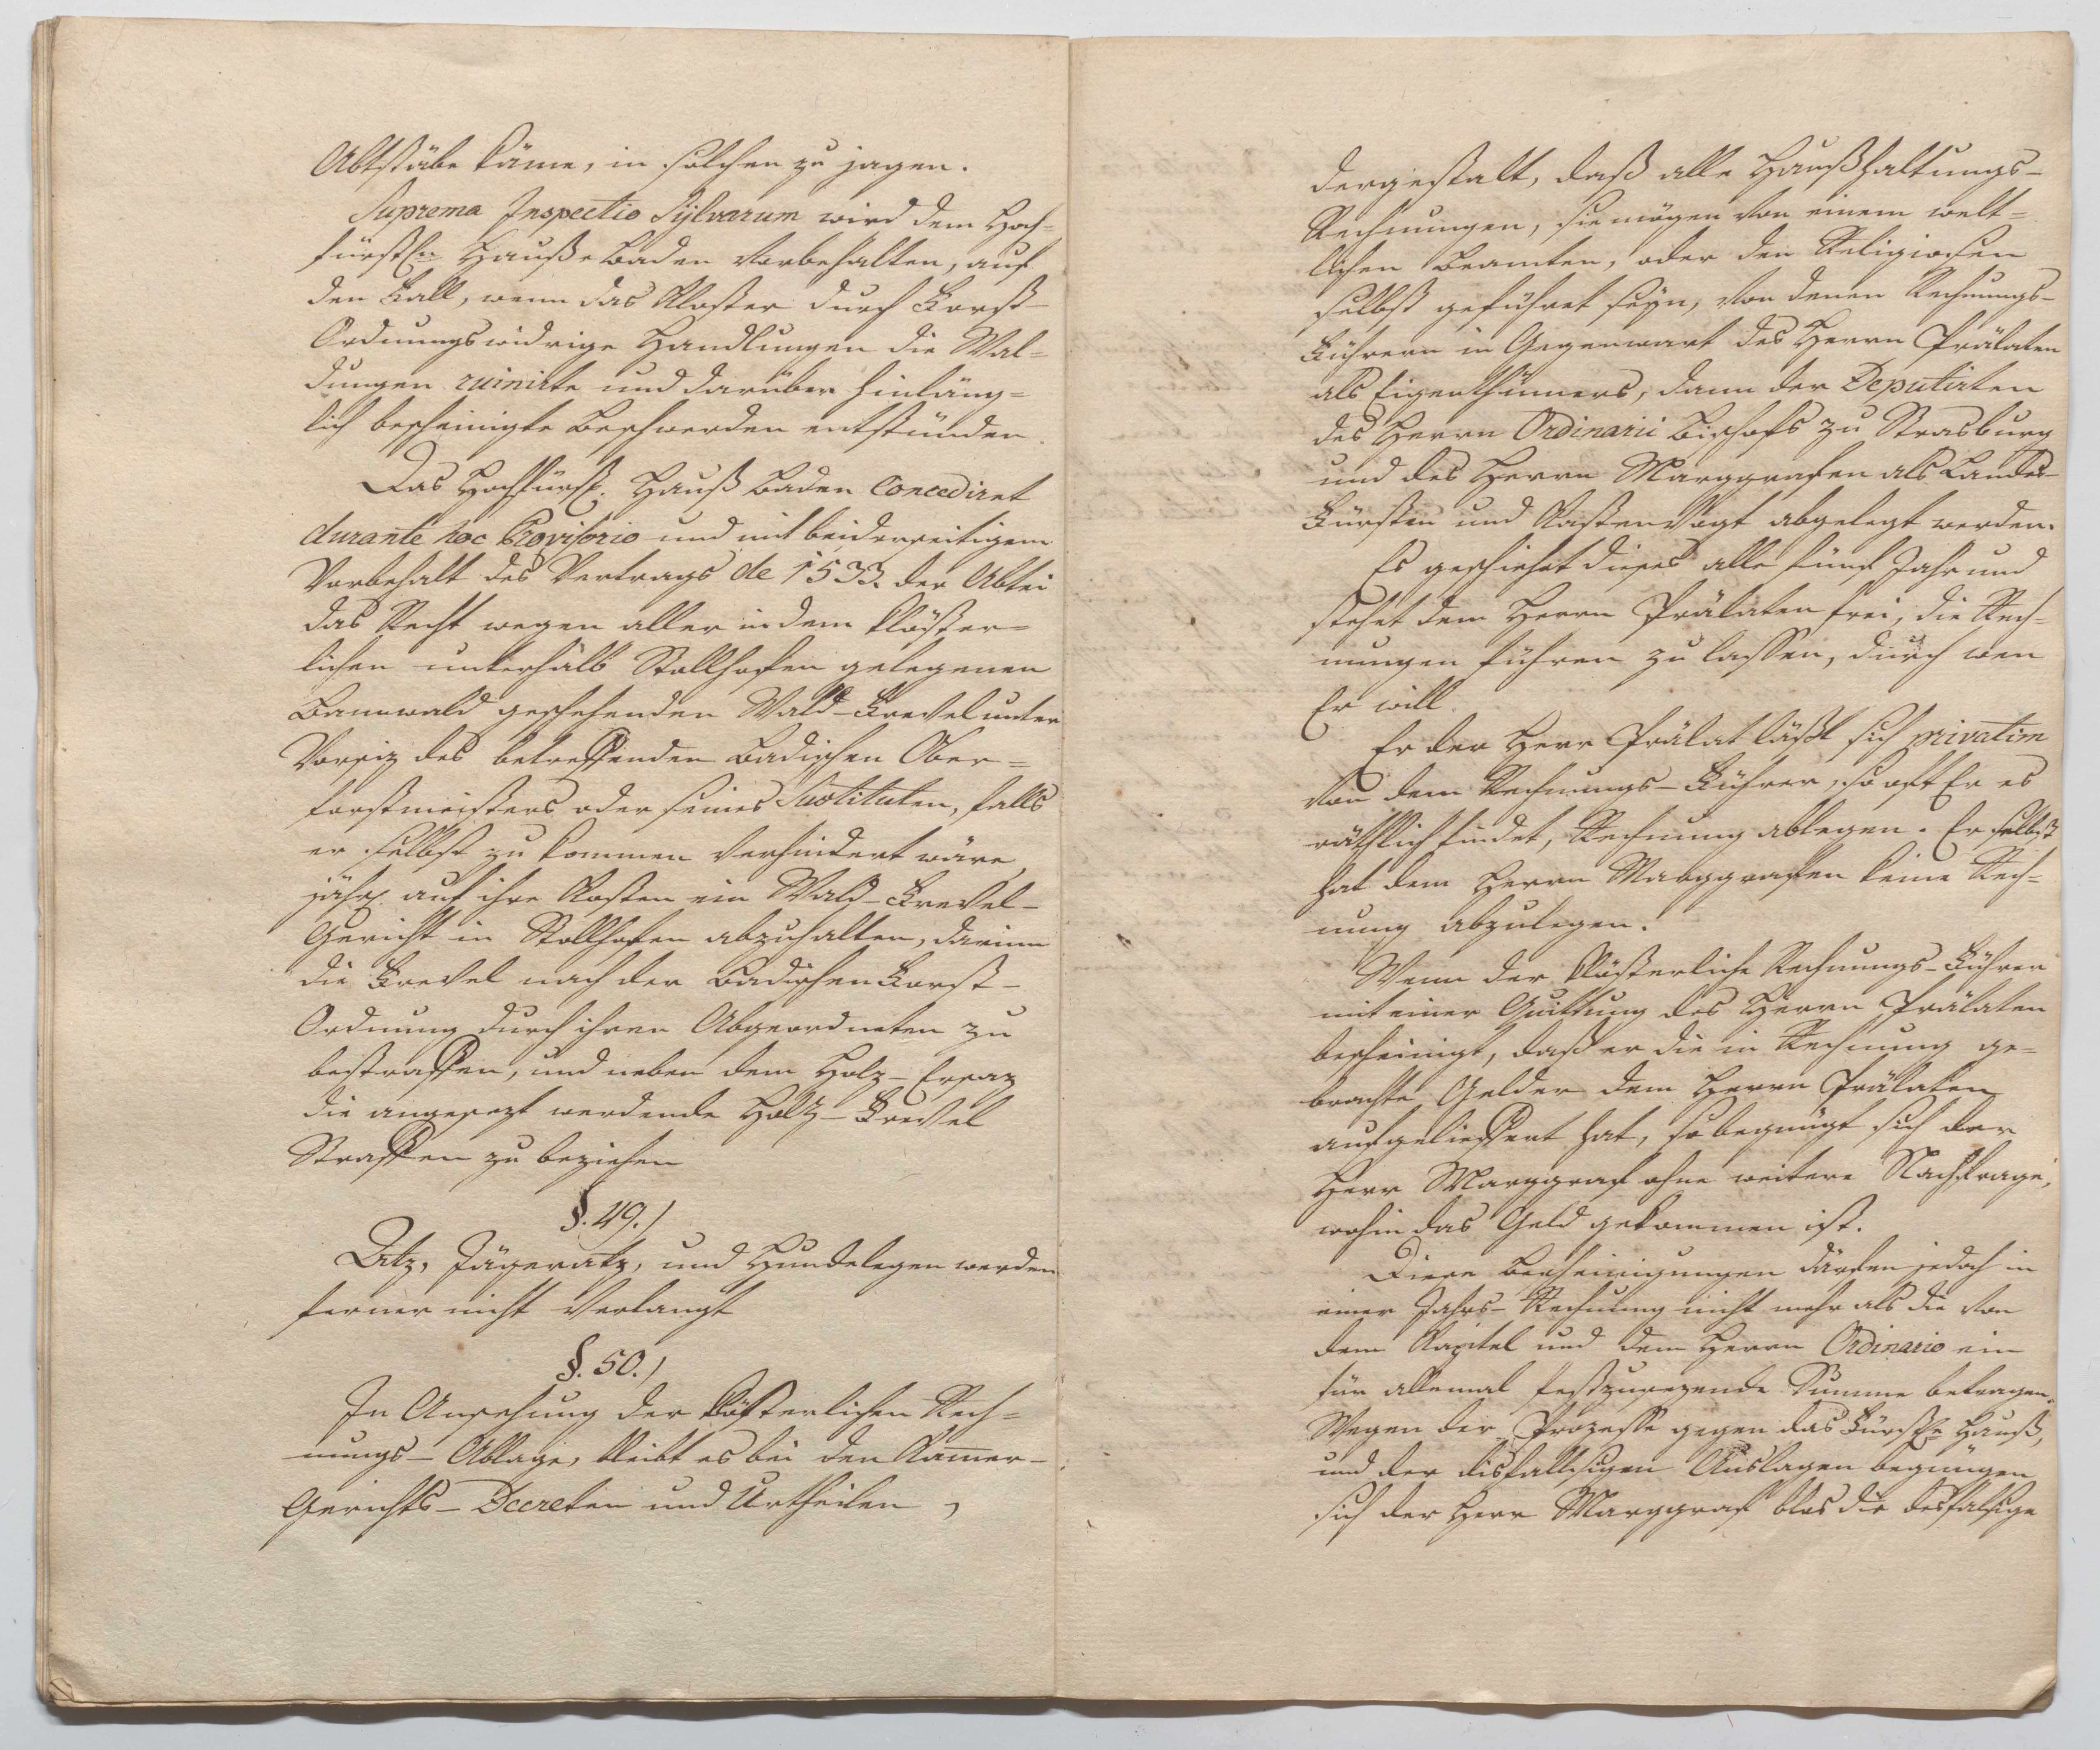 Abtsstäbe käme, in solchen zu jagen.
Suprema Inspectio Sylvarum wird dem Hoch-
fürstln Hauße Baden vorbehalten, auf
den Fall, wenn das Kloster durch Forst-
Ordnungswidrige Handlungen die Wal=
dungen ruinirte und darüber hinläng=
lich bescheinigte Beschwerden entstünden.
Das Hochfürstl. Hauß Baden Concediret
durante hoc Provisorio und mit beiderseitigem
Vorbehalt des Vertrags de 1533. der Abtei
das Recht wegen aller in dem klöster=
lichen unterhalb Stollhofen gelegenen
Bannwald geschehenden Wald-Frevel unter
Vorsiz des betreffenden Badischen Ober=
forstmeisters oder seines Sustituten, falls
er selbst zu kommen verhindert wäre,
jährl. auf ihre Kosten ein Wald-Frevel-
Gericht in Stollhofen abzuhalten, darinn
die Frevel nach der Badischen Forst-
Ordnung durch ihren Abgeordneten zu
bestraffen, und neben dem Holz-Ersaz
die angesezt werdende Holz-Frevel
Straffen zu beziehen
§. 49.)
Atz, Jägeratz, und Hundelegen werden
ferner nicht verlangt
§. 50.)
In Ansehung der klösterlichen Rech=
nungs-Ablage, bleibt es bei den Kam̄er-
Gerichts-Decreten und Urtheilen,
dergestalt, daß alle Haußhaltungs-
Rechnungen, sie mögen von einem welt=
lichen Beamten, oder den Religiosen
selbst geführet seyn, von denen Rechnungs-
Führern in Gegenwart des Herrn Prälaten
als Eigenthümers, dann der Deputirten
des Herrn Ordinarii Bischofs zu Strasburg
und des Herrn Marggrafen als Landes-
Fürsten und Kastenvogt abgelegt werden.
Es geschiehet dieses alle fünf Jahr und
stehet dem Herrn Prälaten frei, die Rech=
nungen führen zu lassen, durch wen
Er will.
Er der Herr Prälat läßt sich privatim
von dem Rechnungs-Führer, so oft Er es
räthlich findet, Rechnung ablegen. Er selbst
hat dem Herrn Marggrafen keine Rech=
nung abzulegen.
Wenn der klösterliche Rechnungs-Führer
mit einer Quittung des Herrn Prälaten
bescheinigt, daß er die in Rechnung ge=
brachte Gelder dem Herrn Prälaten
aufgeliefert hat, so begnügt sich der
Herr Marggraf ohne weitere Nachfrage,
wohin das Geld gekommen ist.
Diese Bescheinigungen därfen jedoch in
einer Jahrs-Rechnung nicht mehr als die von
dem Kapitel und dem Herrn Ordinario ein
für allemal festzusezende Summe betragen.
Wegen der Prozesse gegen das Fürstle Hauß,
und der disfallsigen Auslagen begnügen
sich der Herr Marggraf blos die desfalsige